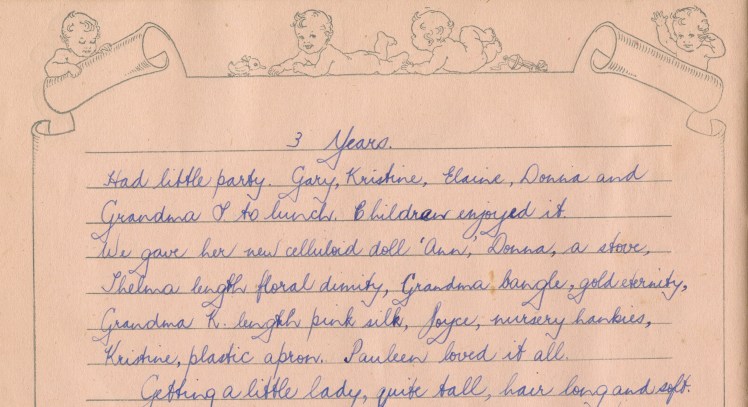 3 Years.
Had little party. Gary, Kristine, Elaine, Donna and
Grandma I to lunch. Children enjoyed it.
We gave her new celluloid doll 'Ann', Donna, a stove,
Thelma length floral dimity, Grandma bangle, gold eternity,
Grandma K. length pink silk, Joyce, nursery hankies,
Kristine, plastic apron. Pauleen loved it all.
Getting a little lady, quite tall, hair long and soft.